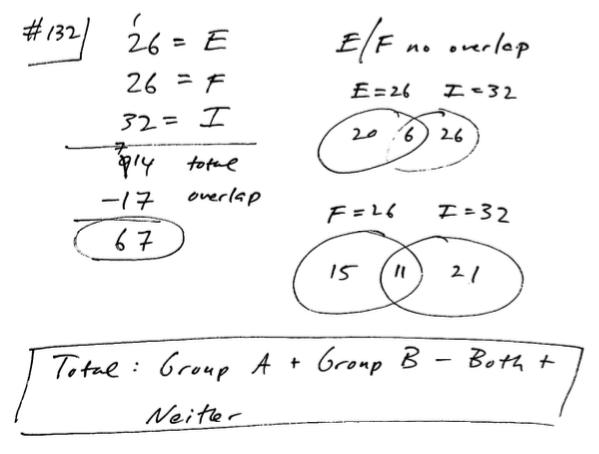 #132
1
26 = E
26 = F
32 = I
7
8 14 total
-17 overlap
67
E/F no overlap
E=26 I=32
20 6 26
F=26 I=32
15 11 21
Total: Group A + Group B - Both +
Neither